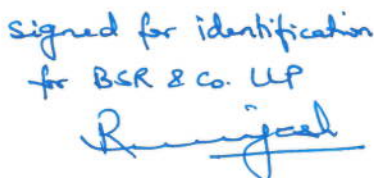 signed for identification
for BSR & Co. LLP